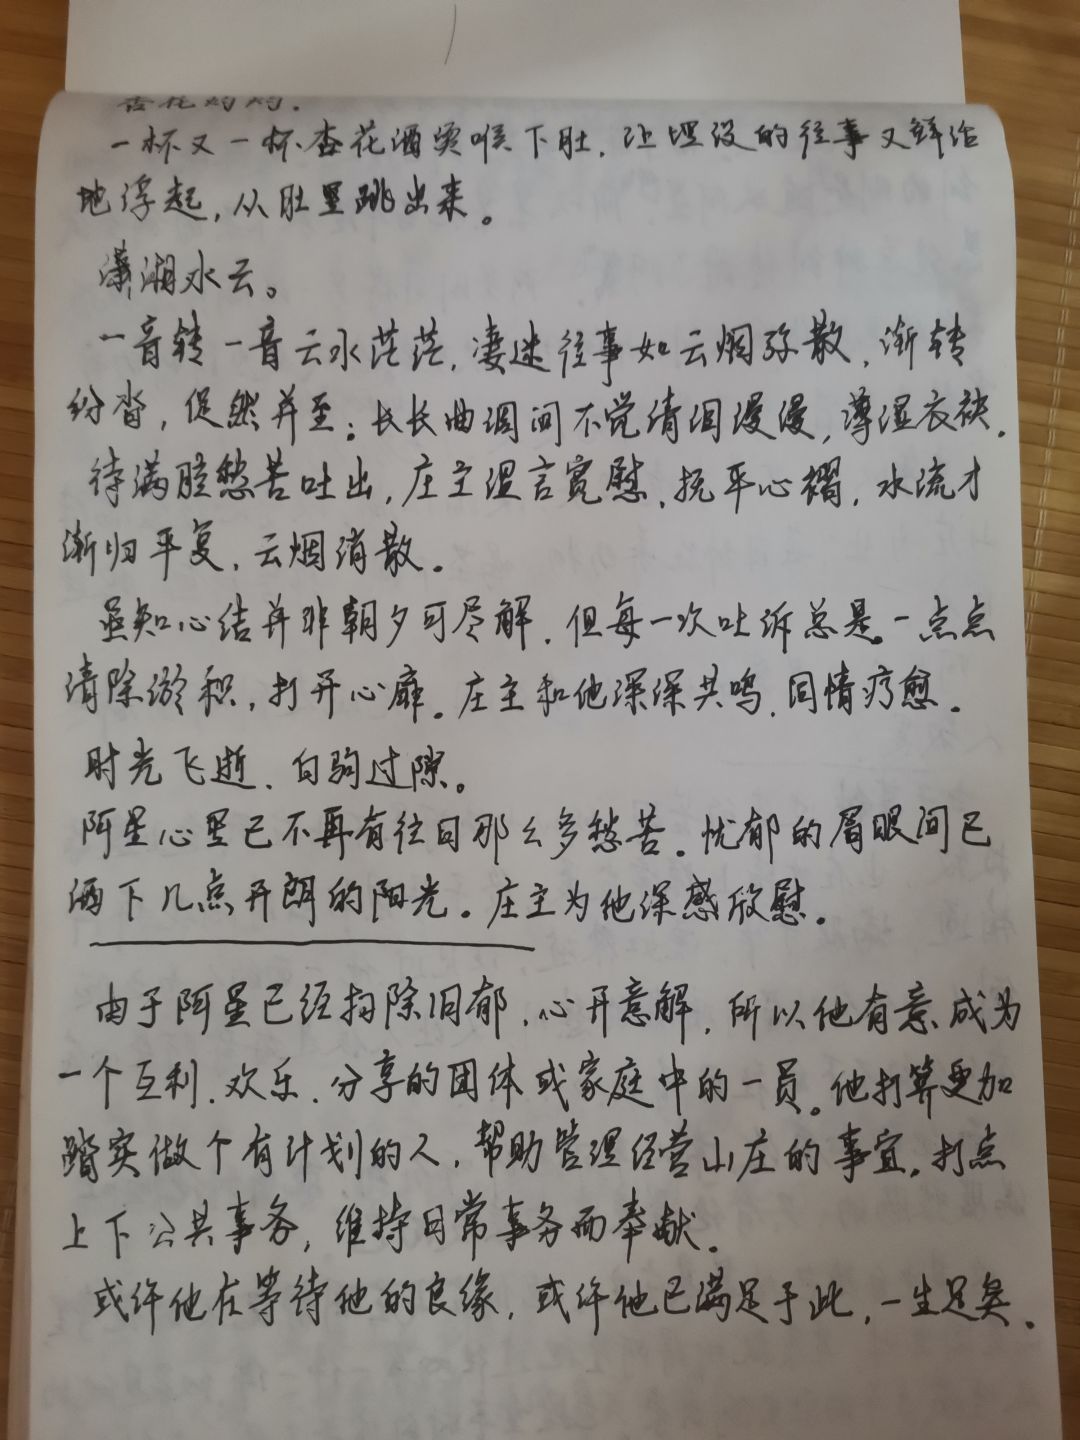 杏花灼灼.
一杯又一杯杏花酒烫喉下肚，让埋没的往事又鲜活
地浮起，从肚里跳出来。
潇湘水云。
一音转一音云水茫茫，凄迷往事如云烟弥散，渐转
纷沓，促然并至；长长曲调间不觉清泪漫漫，薄湿衣袂.
待满腔愁苦吐出，庄主温言宽慰，抚平心褶，水流才
渐归平复，云烟消散。
虽知心结并非朝夕可尽解，但每一次吐诉总是一点点
清除淤积，打开心扉。庄主和他深深共鸣，同情疗愈。
时光飞逝，白驹过隙。
阿星心里已不再有往日那么多愁苦。忧郁的眉眼间已
洒下几点开朗的阳光。庄主为他深感欣慰。
由于阿星已经扫除旧郁，心开意解，所以他有意成为
一个互利、欢乐、分享的团体或家庭中的一员。他打算更加
踏实做个有计划的人，帮助管理经营山庄的事宜，打点
上下公共事务，维持日常事务而奉献.
或许他在等待他的良缘，或许他已满足于此，一生足矣.